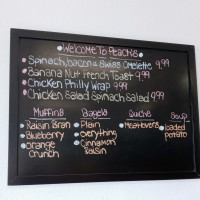 Welcome To Peach's
Spinach, bacon & Swiss Omelette 9.99
Banana Nut French Toast 9.99
Chicken Philly Wrap 9.99
Chicken Salad Spinach Salad 9.99
Muffins Bagels Quiche Soup
Raisin Bran Plain Meatlovers Loaded
Blueberry everything Potato
Orange Cinnamon
Crunch Raisin